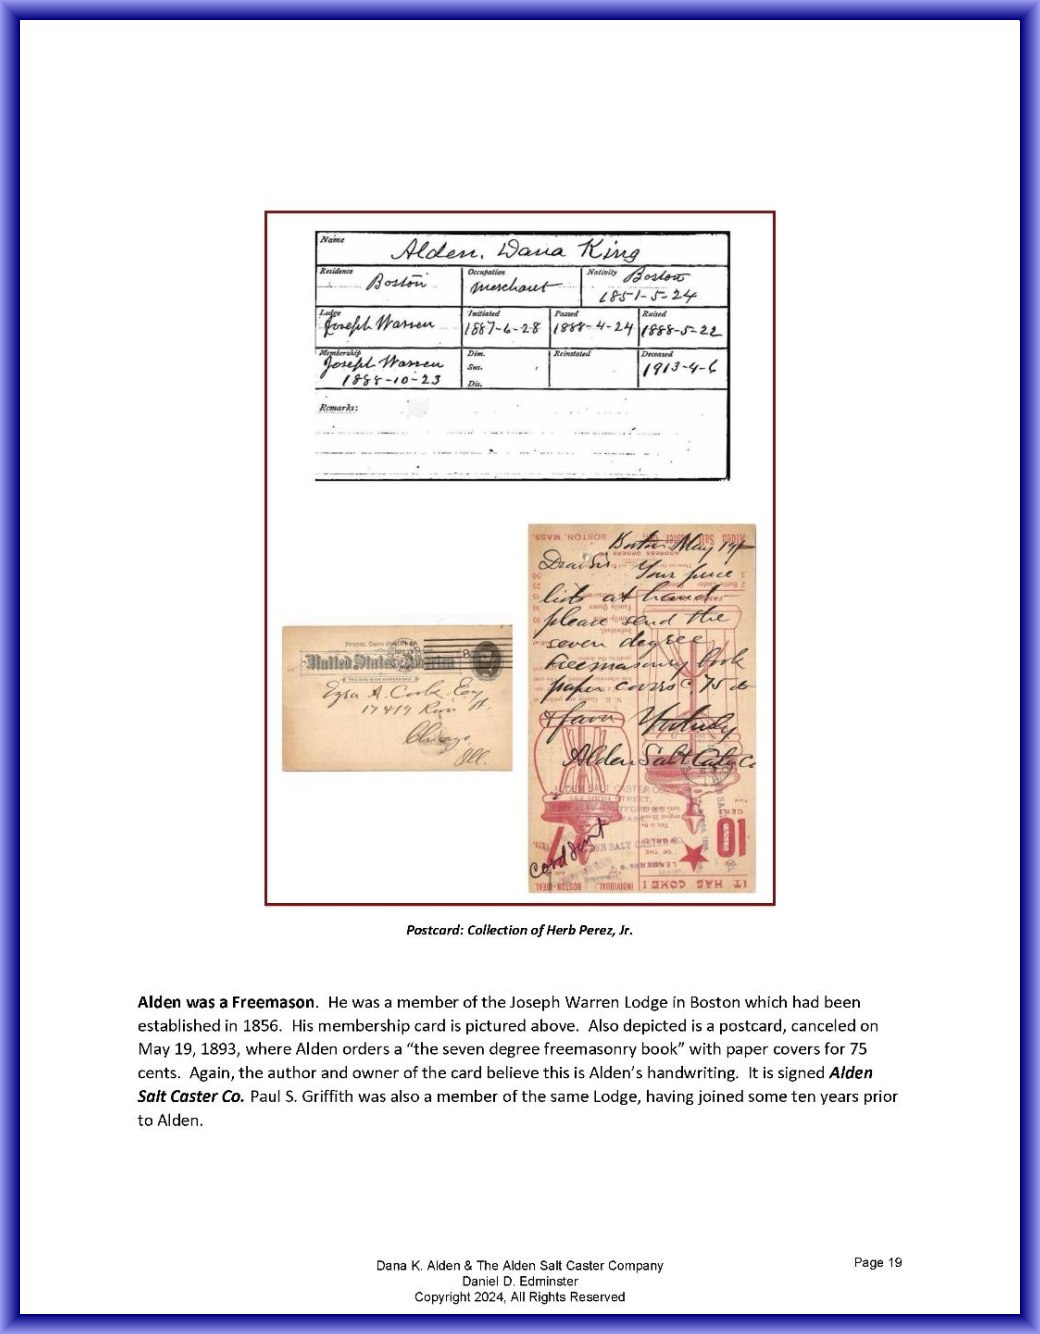 Name
Alden, Dana King
Residence
Boston
Occupation
Merchant
Nativity
Boston
1851-5-24
Lodge
Joseph Warren
Initiated
1887-6-28
Passed
1888-4-24
Raised
1888-5-22
Membership
Joseph Warren
1888-10-23
Dim.
Sus.
Dis.
Reinstated
Deceased
1913-4-6
Remarks:
United States America
Ezra A Cook
Chicago
Ill.
BOSTON, MASS.
Boston May 19
Dear Sir Your price
lists at hand
please send the
seven degree
Freemasonry book
paper covers 75
Alden Salt
card sent
10
CENT
LEADERS
OF THE
WORLD
INDIVIDUAL, BOSTON-IDEAL
IT HAS COME!
Postcard: Collection of Herb Perez, Jr.
Alden was a Freemason. He was a member of the Joseph Warren Lodge in Boston which had been
established in 1856. His membership card is pictured above. Also depicted is a postcard, canceled on
May 19, 1893, where Alden orders a “the seven degree freemasonry book” with paper covers for 75
cents. Again, the author and owner of the card believe this is Alden’s handwriting. It is signed Alden
Salt Caster Co. Paul S. Griffith was also a member of the same Lodge, having joined some ten years prior
to Alden.
Dana K. Alden & The Alden Salt Caster Company
Daniel D. Edminster
Copyright 2024, All Rights Reserved
Page 19